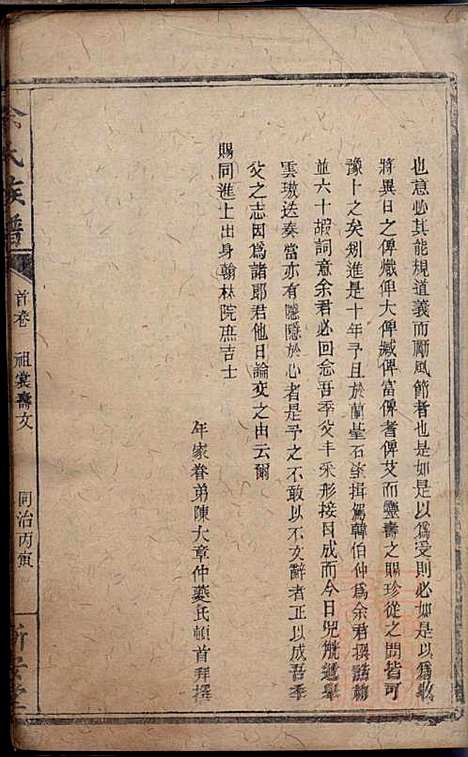 也意必其能規道義而勵風節者也是如是以爲受則必如是以爲收
將異日之俾熾俾大俾臧俾富俾耆俾艾而靈壽之賜珍從之問皆可
豫卜之矣矧進是十年予且於蘭臺石室揖駕韓伯仲爲余君撰
並六十嘏詞意余君必回念吾季父丰采形接日成而今日兕觥遞舉
雲璈迭奏當亦有隱隱於心者是予之不敢以不文辭者正以成吾季
父之志因爲諸郎君他日論交之由云爾
賜同進士出身翰林院庶吉士
年家眷弟陳大章仲夔氏頓首拜撰
余氏族譜
首卷 祖裳壽文
同治丙寅
新安堂